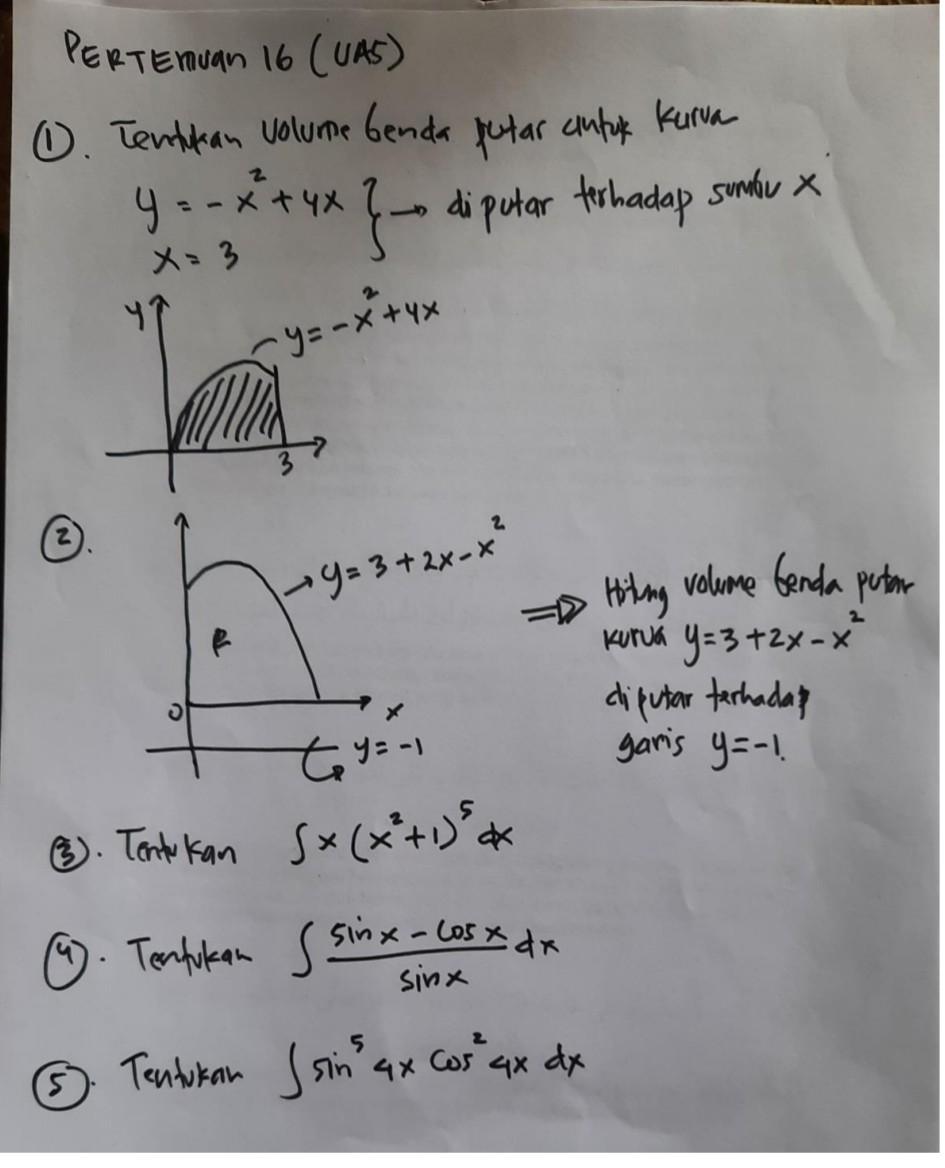 PERTEMUAN 16 (UAS)
①. Tentukan Volume benda putar untuk kurva
y = -x² + 4x } → diputar terhadap sumbu x
x = 3
y
y = -x² + 4x
3
②.
y = 3 + 2x - x²
R
0
x
y = -1
⇒ Hitung volume benda putar
kurva y = 3 + 2x - x²
diputar terhadap
garis y = -1.
③. Tentukan ∫ x (x² + 1)⁵ dx
④. Tentukan ∫ (sin x - cos x)/(sin x) dx
⑤. Tentukan ∫ sin⁵ 4x cos² 4x dx